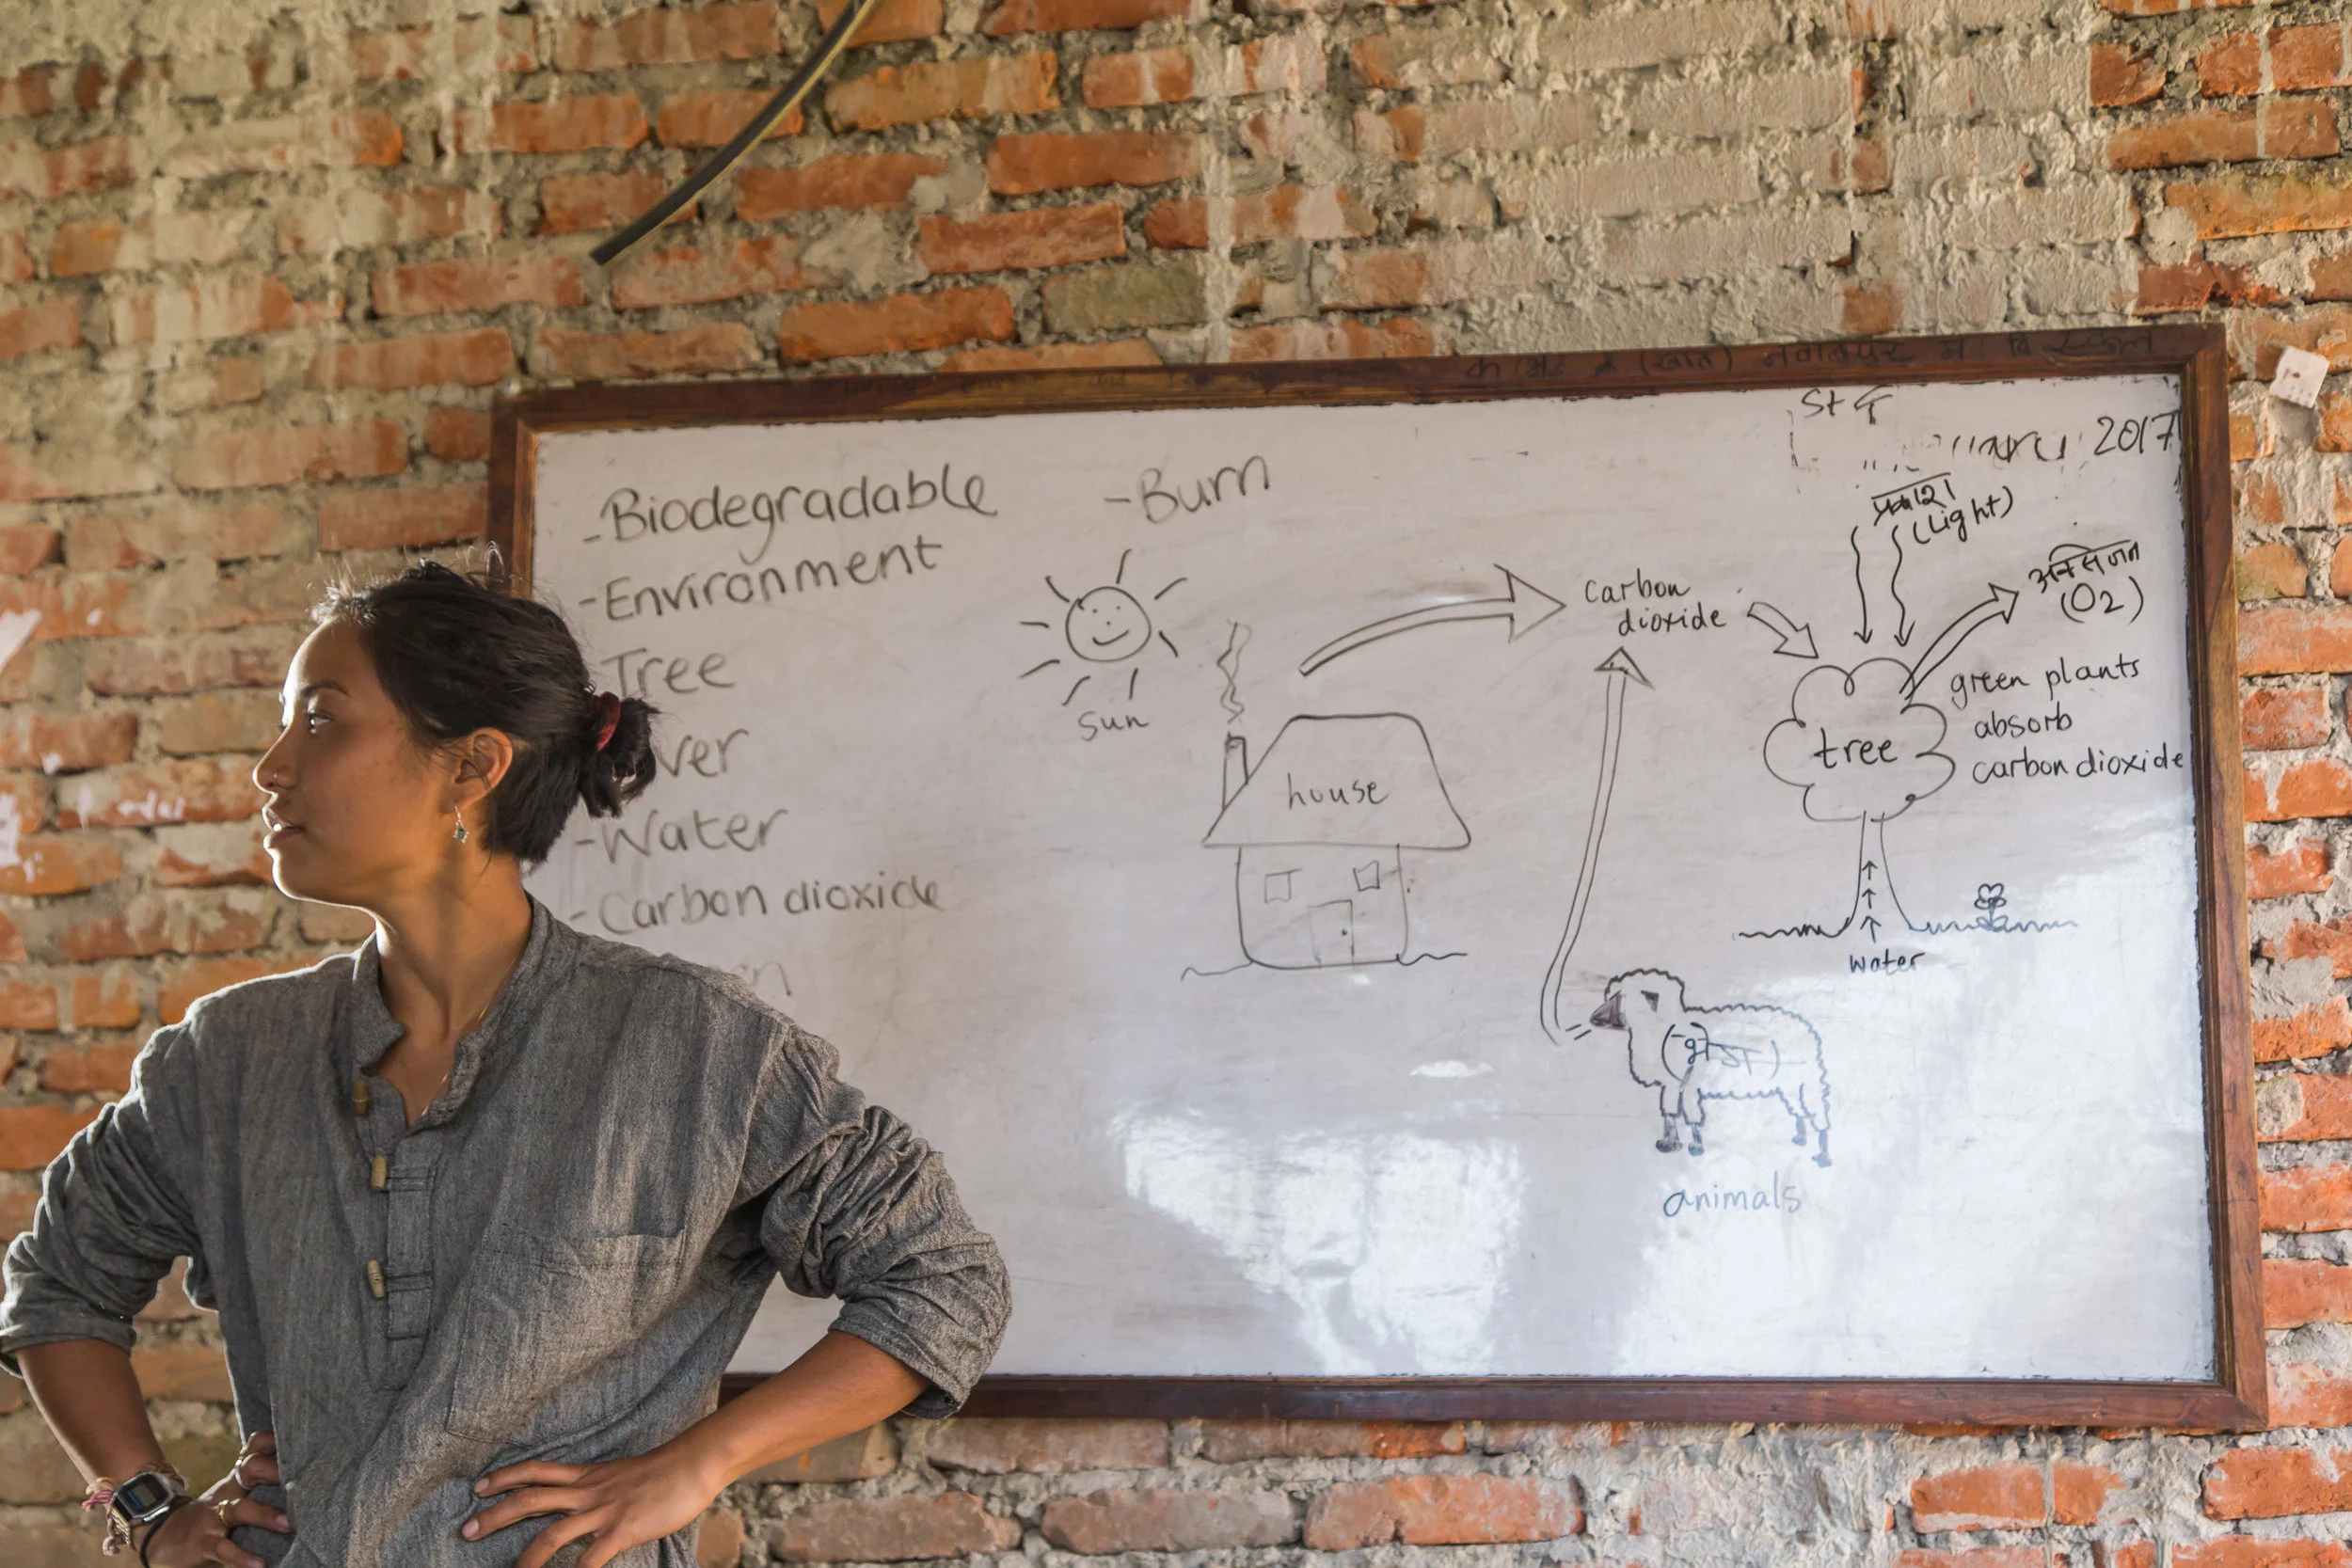 -Biodegradable
-Environment
Tree
ver
-Water
-Carbon dioxide
en
-Burn
sun
house
carbon
dioxide
2017
(Light)
अक्सिजन
(O2)
tree
green plants
absorb
carbon dioxide
water
animals